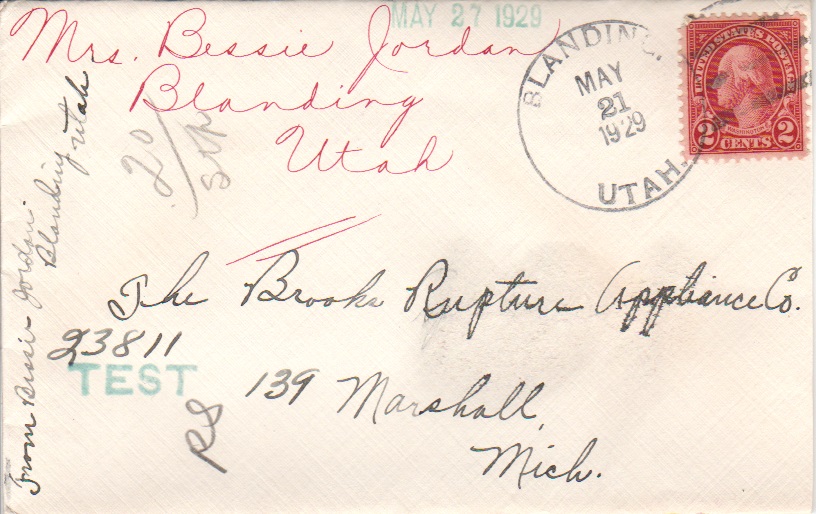 MAY 27 1929
Mrs. Bessie Jordan
Blanding
Utah
BLANDING.
MAY
21
1929
UTAH.
UNITED STATES POSTAGE
WASHINGTON
2 CENTS 2
20/
From Bessie Jordan
Blanding Utah
The Brooks Rupture Appliance Co.
23811
TEST
139 Marshall,
Mich.
RS